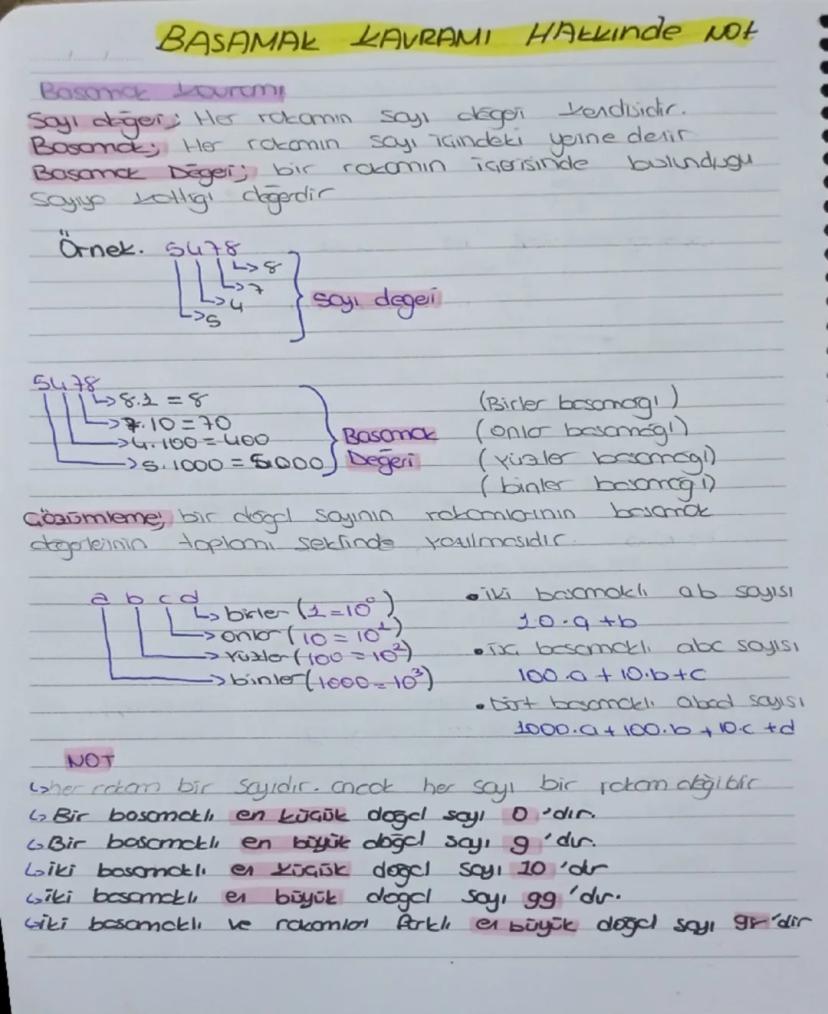 BASAMAK KAVRAMI HAKKINDE NOT
Basamak kavramı
Sayı değeri; Her rakamın sayı değeri kendisidir.
Basamak; Her rakamın sayı içindeki yerine denir
Basamak Değeri; bir rakamın içerisinde bulunduğu
sayıya kattığı değerdir
Örnek. 5478
8
7
4
5
sayı değeri
5478
8.1 = 8 (Birler basamağı)
7.10 = 70 (onlar basamağı)
4.100 = 400 (yüzler basamağı)
5.1000 = 5000 (binler basamağı)
Basamak
Değeri
Çözümleme; bir doğal sayının rakamlarının basamak
değerlerinin toplamı şeklinde yazılmasıdır.
a b c d
birler (1=10⁰)
onlar (10 = 10¹)
yüzler (100 = 10²)
binler (1000 = 10³)
• iki basamaklı ab sayısı
10.a + b
• üç basamaklı abc sayısı
100.a + 10.b + c
• dört basamaklı abcd sayısı
1000.a + 100.b + 10.c + d
NOT
↳ her rakam bir sayıdır. ancak her sayı bir rakam değildir
↳ Bir basamaklı en küçük doğal sayı 0'dır.
↳ Bir basamaklı en büyük doğal sayı 9'dur.
↳ iki basamaklı en küçük doğal sayı 10'dr
↳ iki basamaklı en büyük doğal sayı 99'dur.
↳ iki basamaklı ve rakamları farklı en büyük doğal sayı 'dir